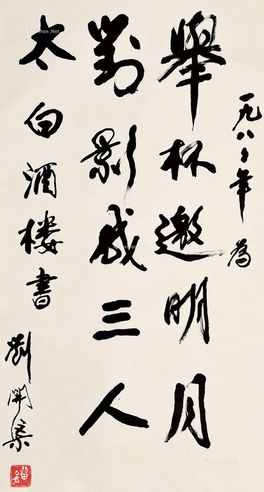 一九八〇年 為
舉杯邀明月
對影成三人
太白酒楼書
劉開渠